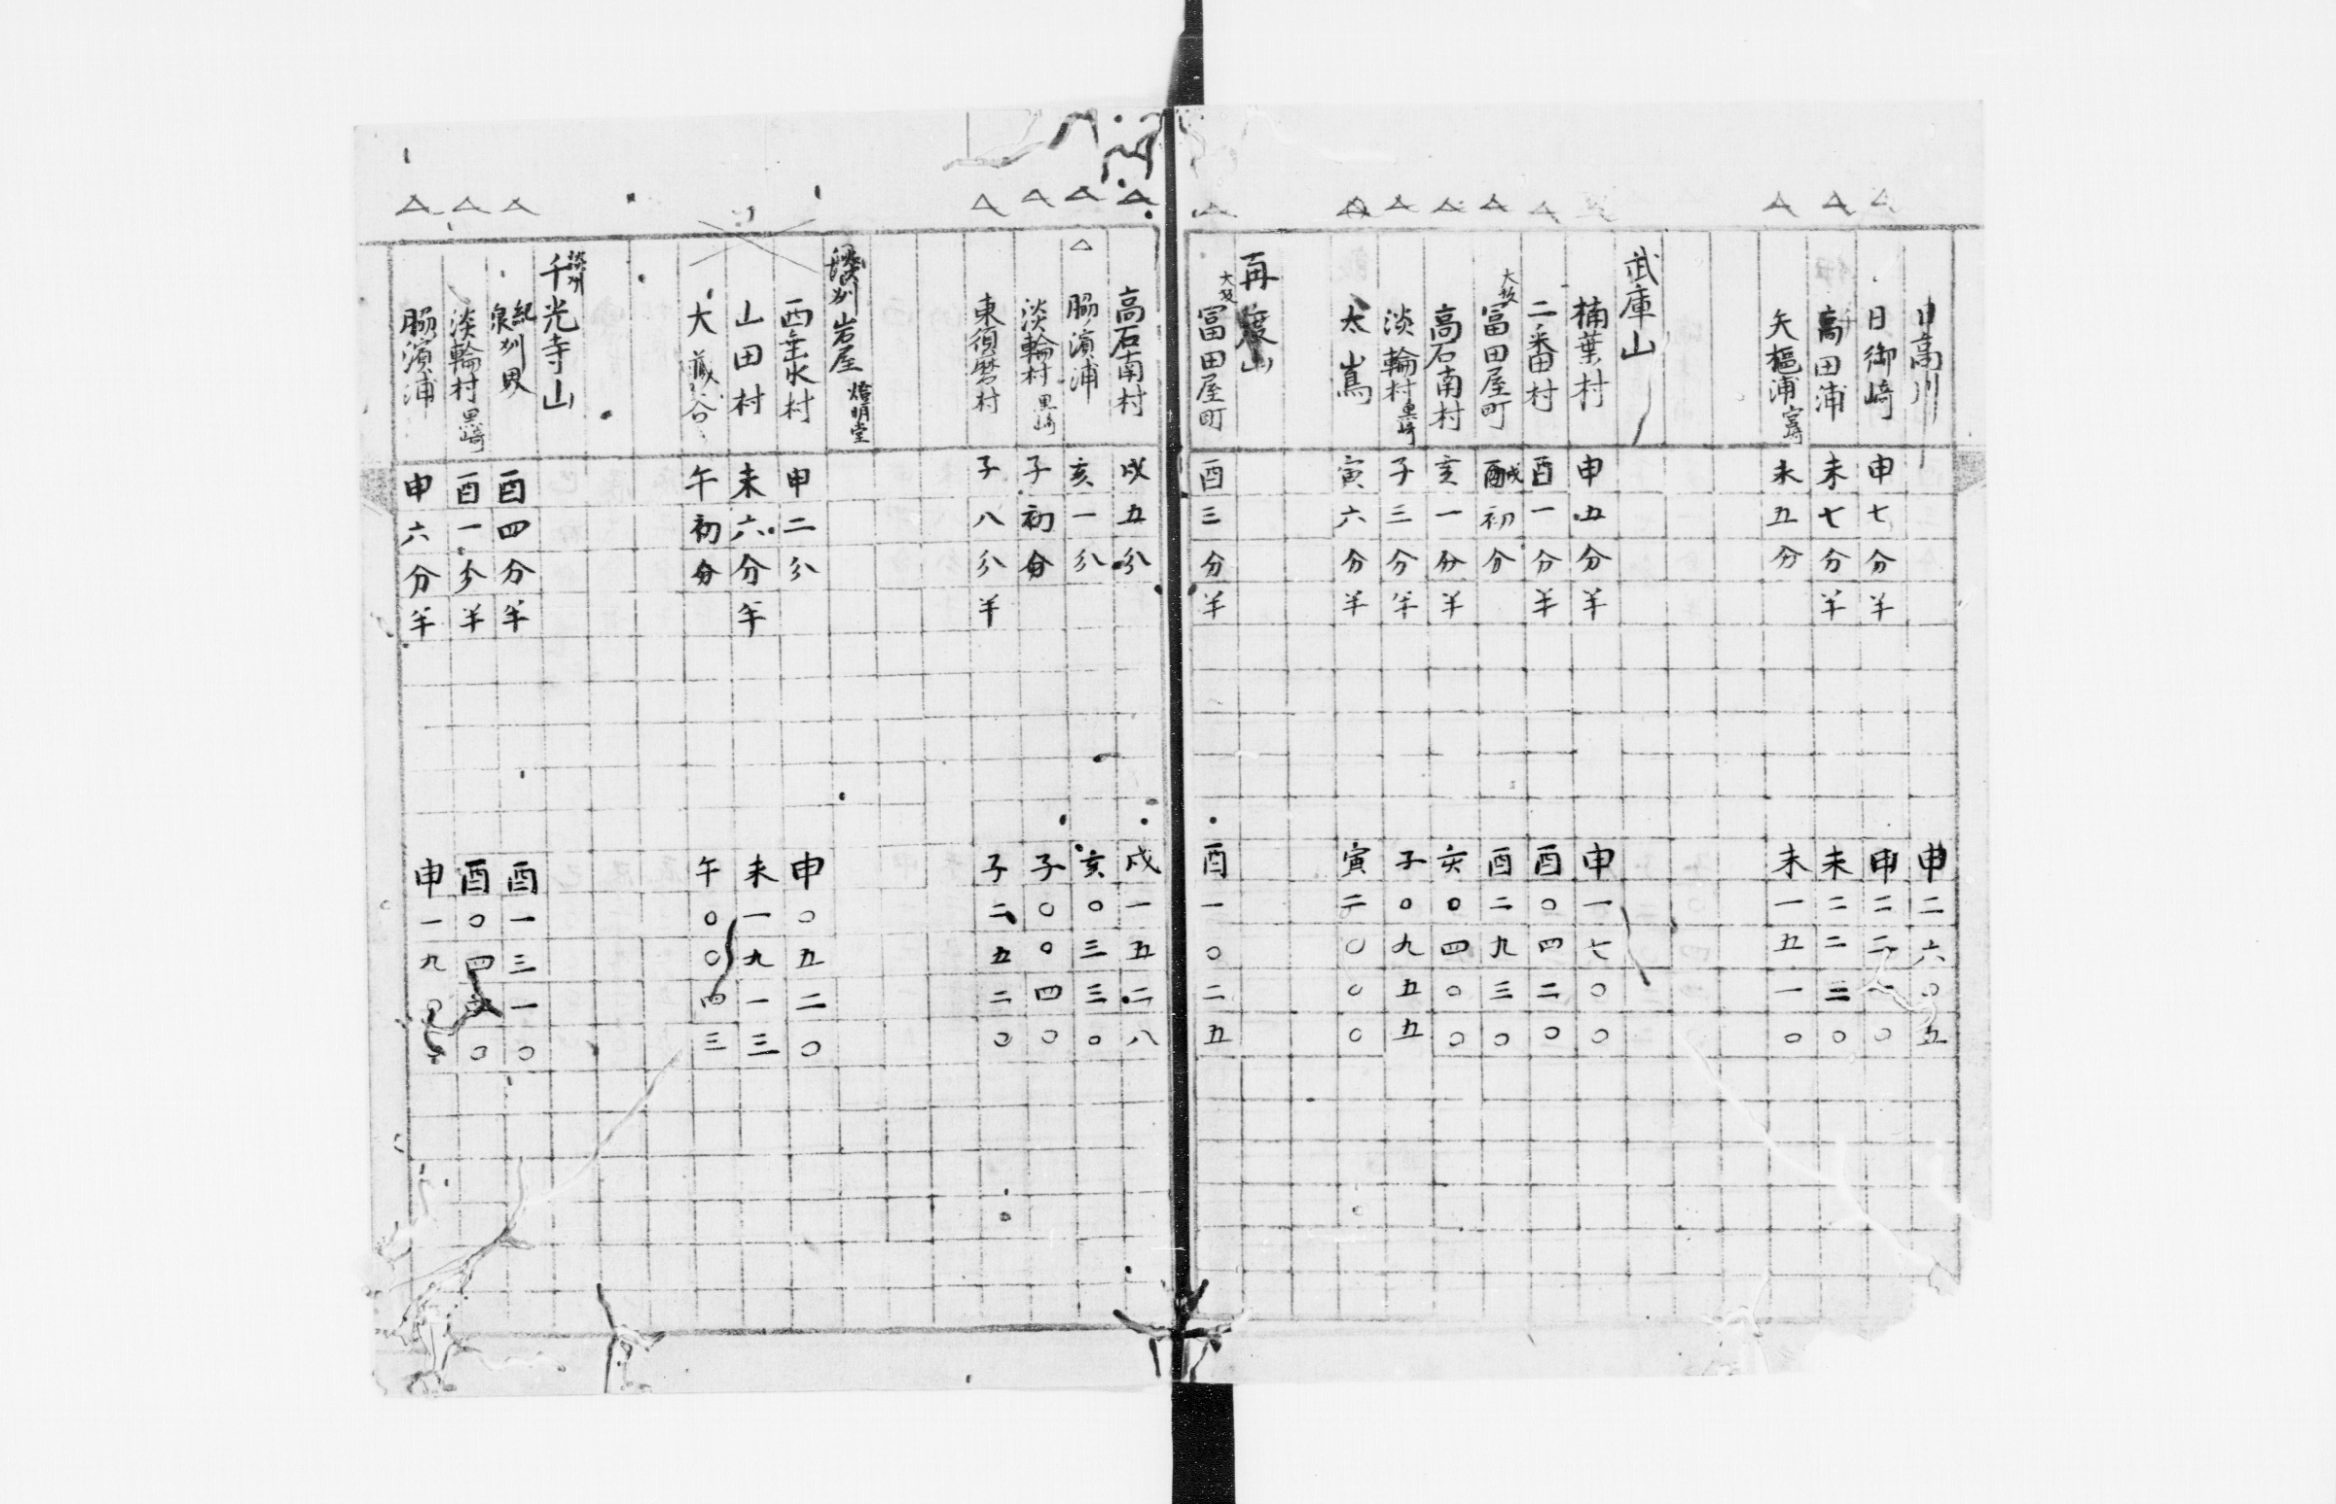 日高川 申二六〇五
日御崎 申七分半 申二二一〇
高田浦 未七分半 未二二三〇
矢櫃浦宮崎 未五分 未一五一〇
武庫山
楠葉村 申五分半 申一七〇〇
二番田村 酉一分半 酉〇四二〇
大坂冨田屋町 戌初分 酉二九三〇
高石南村 亥一分半 亥〇四〇〇
淡輪村黒崎 子三分半 子〇九五五
大嶌 寅六分半 寅二〇〇〇
再度山
大坂冨田屋町 酉三分半 酉一〇二五
高石南村 戌五分 戌一五二八
△脇濱浦 亥一分 亥〇三三〇
淡輪村黒崎 子初分 子〇〇四〇
東須磨村 子八分半 子二五二〇
淡州岩屋燈明堂
西垂水村 申二分 申〇五二〇
山田村 未六分半 未一九一三
大蔵谷 午初分 午〇〇四三
淡州千光寺山
紀泉州界 酉四分半 酉一三一〇
淡輪村黒崎 酉一分半 酉〇四〇
脇濱浦 申六分半 申一九